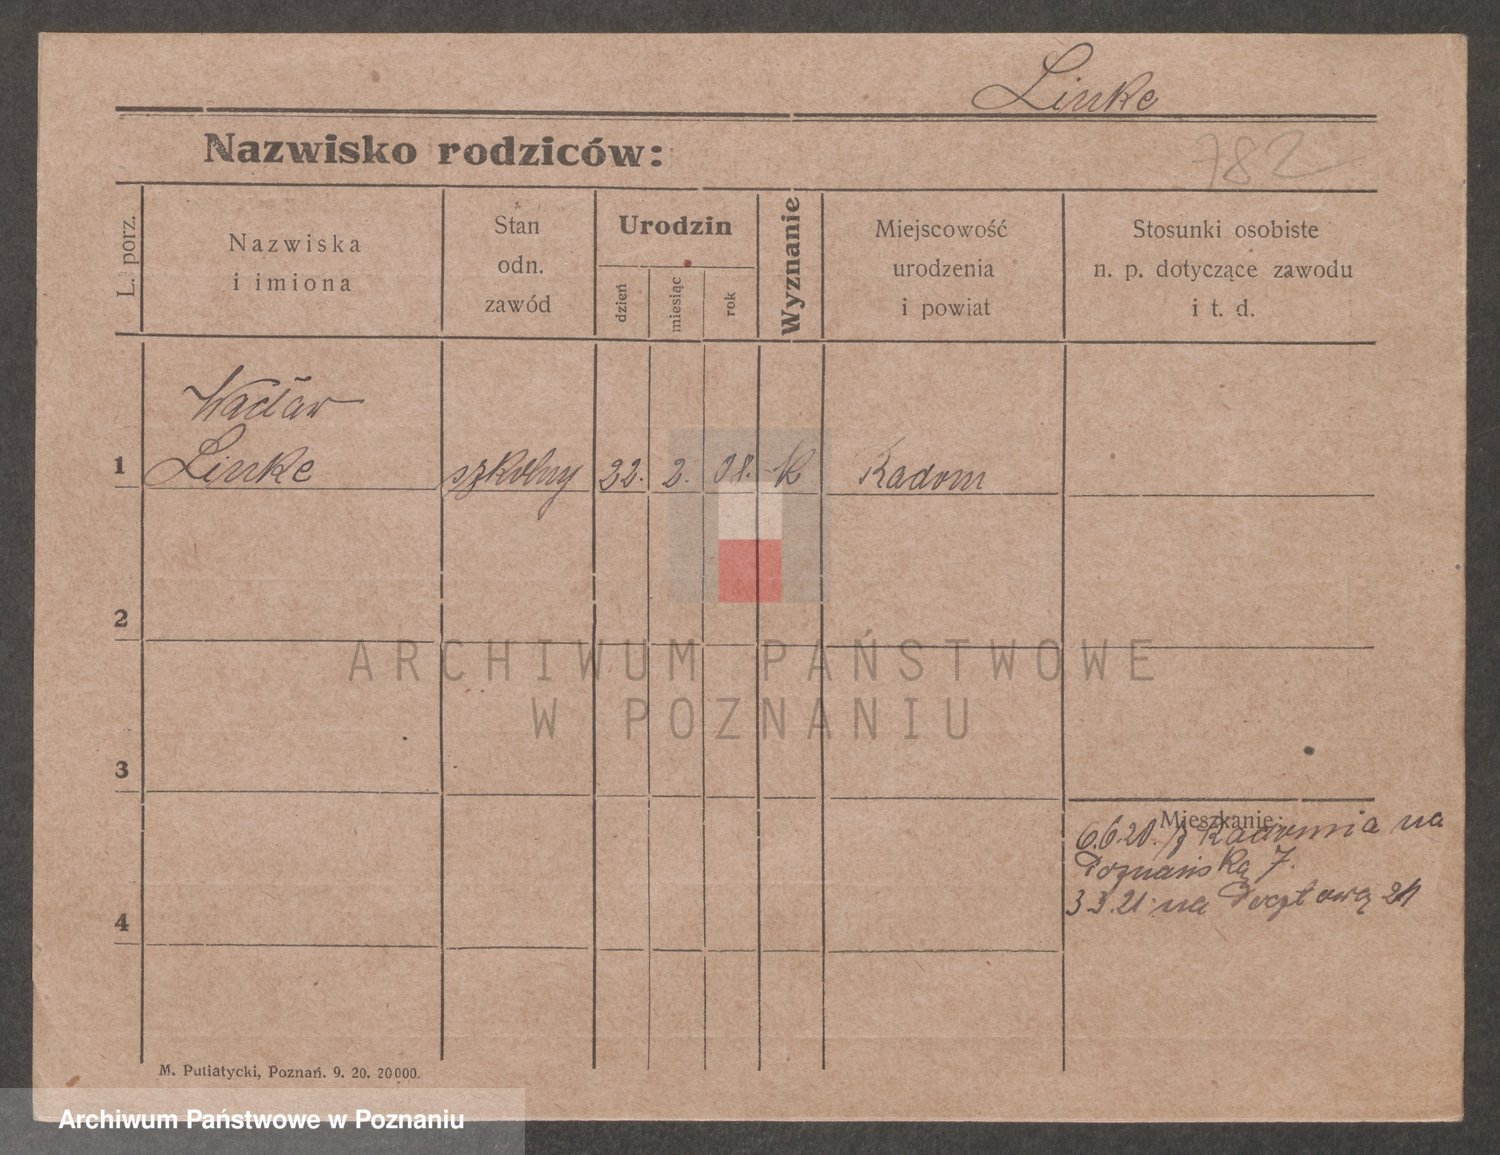 Linke
Nazwisko rodziców:
782
L. porz.
Nazwiska
i imiona
Stan
odn.
zawód
Urodzin
dzień
miesiąc
rok
Wyznanie
Miejscowość
urodzenia
i powiat
Stosunki osobiste
n. p. dotyczące zawodu
i t. d.
Wacław
1 Linke szkolny 22. 2. 08. K Radom
2
ARCHIWUM PAŃSTWOWE
W POZNANIU
3
Mieszkanie:
6.6.20. z Radomia na
Poznańską 7.
4
3.3.21. na Pocztową 21
M. Putiatycki, Poznań. 9. 20. 20000.
Archiwum Państwowe w Poznaniu